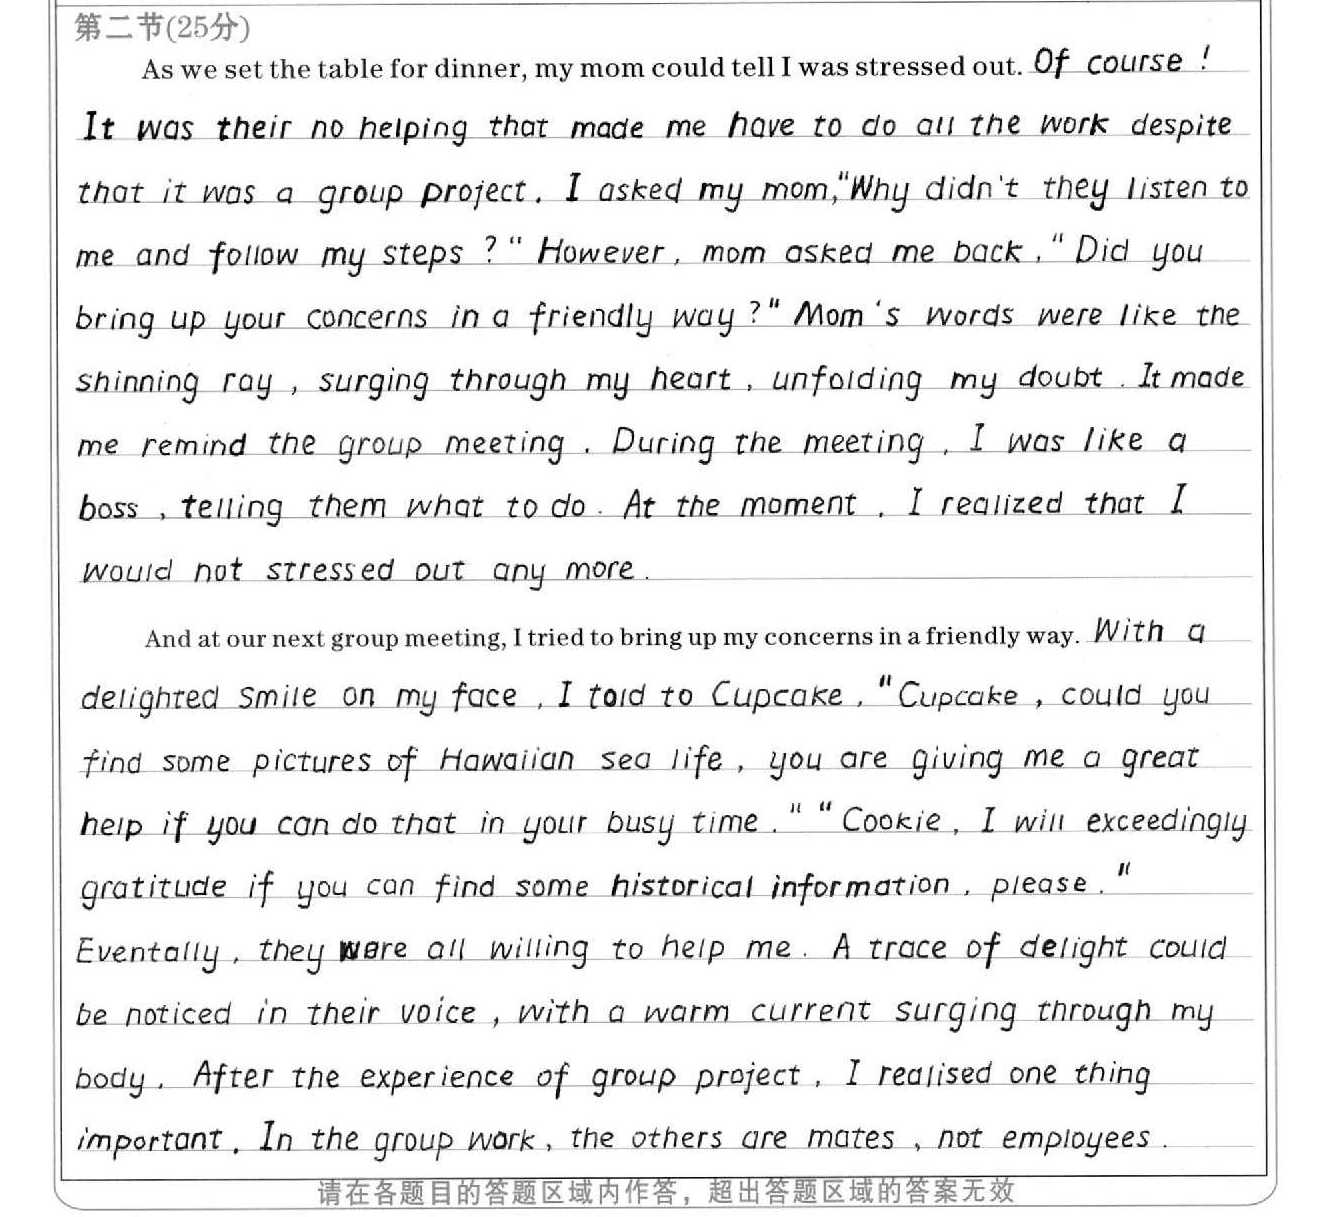 第二节(25分)
As we set the table for dinner, my mom could tell I was stressed out. Of course !
It was their no helping that made me have to do all the work despite
that it was a group project. I asked my mom,"Why didn't they listen to
me and follow my steps ?" However, mom asked me back, "Did you
bring up your concerns in a friendly way ?" Mom's words were like the
shinning ray, surging through my heart, unfolding my doubt. It made
me remind the group meeting. During the meeting, I was like a
boss, telling them what to do. At the moment, I realized that I
would not stressed out any more.
And at our next group meeting, I tried to bring up my concerns in a friendly way. With a
delighted smile on my face, I told to Cupcake, "Cupcake, could you
find some pictures of Hawaiian sea life, you are giving me a great
help if you can do that in your busy time." "Cookie, I will exceedingly
gratitude if you can find some historical information, please."
Eventally, they were all willing to help me. A trace of delight could
be noticed in their voice, with a warm current surging through my
body. After the experience of group project, I realised one thing
important. In the group work, the others are mates, not employees.
请在各题目的答题区域内作答，超出答题区域的答案无效